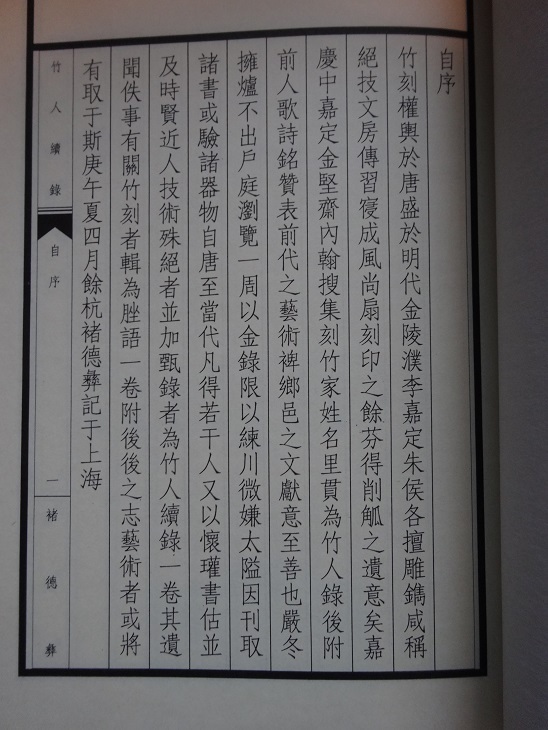 自序
竹刻權輿於唐盛於明代金陵濮李嘉定朱侯各擅雕鐫咸稱
絕技文房傳習寖成風尚扇刻印之餘芬得削觚之遺意矣嘉
慶中嘉定金堅齋內翰搜集刻竹家姓名里貫為竹人錄後附
前人歌詩銘贊表前代之藝術裨鄉邑之文獻意至善也嚴冬
擁爐不出戶庭瀏覽一周以金錄限以練川微嫌太隘因刊取
諸書或驗諸器物自唐至當代凡得若干人又以懷瓘書估並
及時賢近人技術殊絕者並加甄錄者為竹人續錄一卷其遺
聞佚事有關竹刻者輯為脞語一卷附後後之志藝術者或將
有取于斯庚午夏四月餘杭褚德彝記于上海
竹人續錄
自序
一
褚德彝